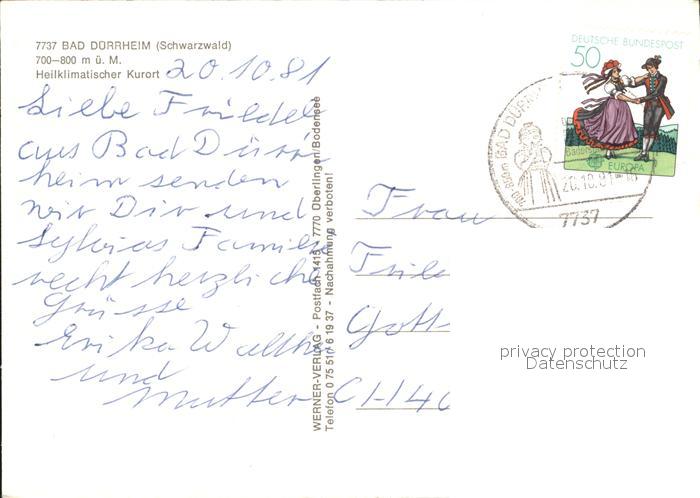 7737 BAD DÜRRHEIM (Schwarzwald)
700—800 m ü. M.
Heilklimatischer Kurort
20.10.81
Liebe Friedel
aus Bad Dürr
heim senden
wir Dir und
Sylvias Familie
recht herzliche
Grüsse
Erika Walther
und
Mutter
WERNER-VERLAG - Postfach 1415 - 7770 Oberlingen/Bodensee
Telefon 0 75 51 / 6 19 37 - Nachahmung verboten!
DEUTSCHE BUNDESPOST
50
EUROPA
BAD DÜRR
20.10.81
7737
Frau
CH-14
privacy protection
Datenschutz